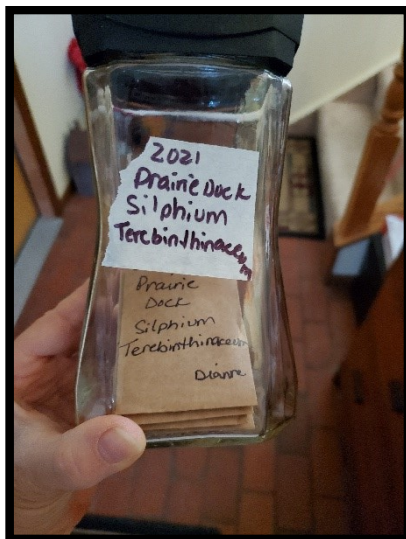 2021
Prairie Dock
Silphium
Terebinthinaceum
Prairie
Dock
Silphium
Terebinthinaceum
Dianne